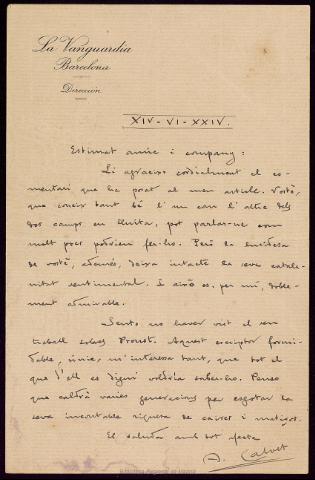 La Vanguardia
Barcelona
Dirección
XIV-VI-XXIV.
Estimat amic i company:
Li agraeixo cordialment el co-
mentari que ha posat al meu article. Vostè,
que coneix tant bé l'un com l'altre dels
dos camps en lluita, pot parlar-ne com
molt pocs podrien fer-ho. Però la lucidesa
de vostè, ademés, deixa intacte la seva catala-
nitat sentimental. I això es, per mi, doble-
ment admirable.
Sento no haver vist el seu
treball sobre Proust. Aquest escriptor formi-
dable, únic, m'interessa tant, que tot el
que d'ell es digui voldria saber-ho. Penso
que caldrà varies generacions per esgotar la
seva incontable riquesa de caires i matisos.
El saluda amb tot afecte
A. Calvet
Biblioteca Nacional de España